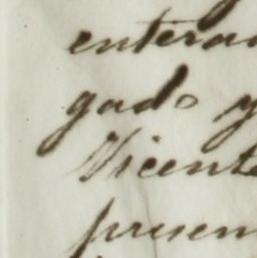 enterad
gado y
Vicente
presen